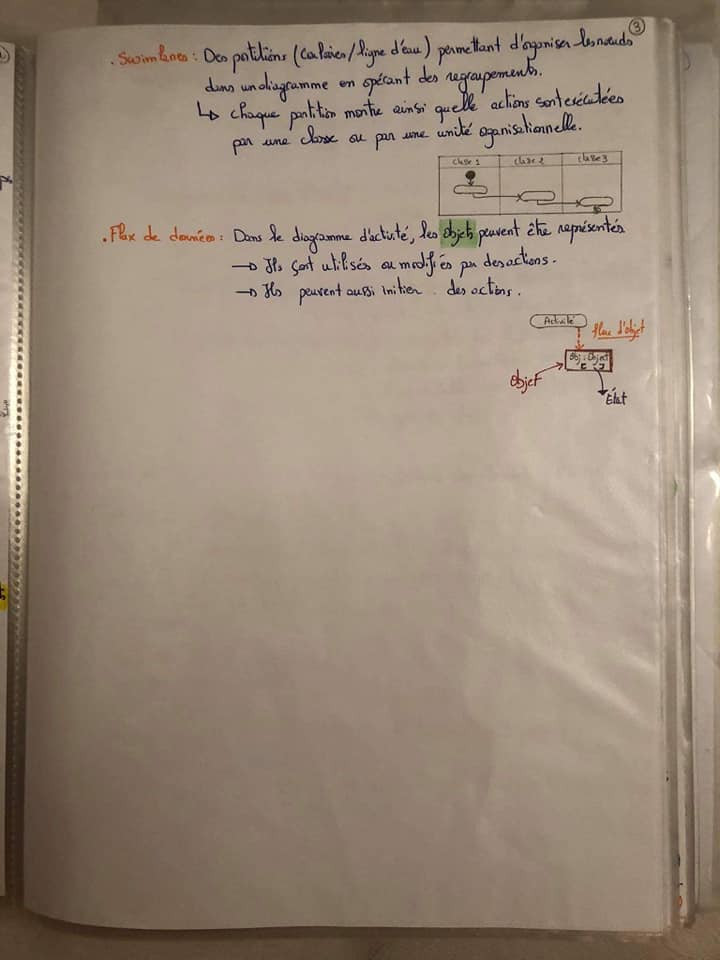 3
. Swimlanes : Des partitions (Couloires / ligne d'eau) permettant d'organiser les nœuds
dans un diagramme en opérant des regroupements.
↳ chaque partition montre ainsi quelle actions sont exécutées
par une classe ou par une unité organisationnelle.
classe 1 classe 2 classe 3
. Flux de données : Dans le diagramme d'activité, les objets peuvent être représentés
→ Ils sont utilisés ou modifiés par des actions.
→ Ils peuvent aussi initier des actions.
Activité
flux d'objet
Obj : Object
[ ]
Objet
État